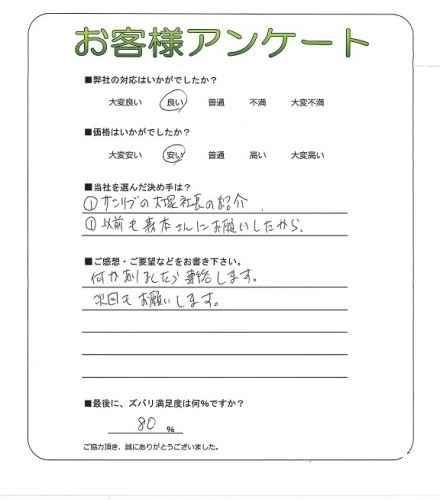 お客様アンケート
■弊社の対応はいかがでしたか？
大変良い 良い 普通 不満 大変不満
■価格はいかがでしたか？
大変安い 安い 普通 高い 大変高い
■当社を選んだ決め手は？
①サンリブの大堀社長の紹介
①以前も森本さんにお願いしたから。
■ご感想・ご要望などをお書き下さい。
何かありましたら連絡します。
次回もお願いします。
■最後に、ズバリ満足度は何%ですか？
80 %
ご協力頂き、誠にありがとうございました。